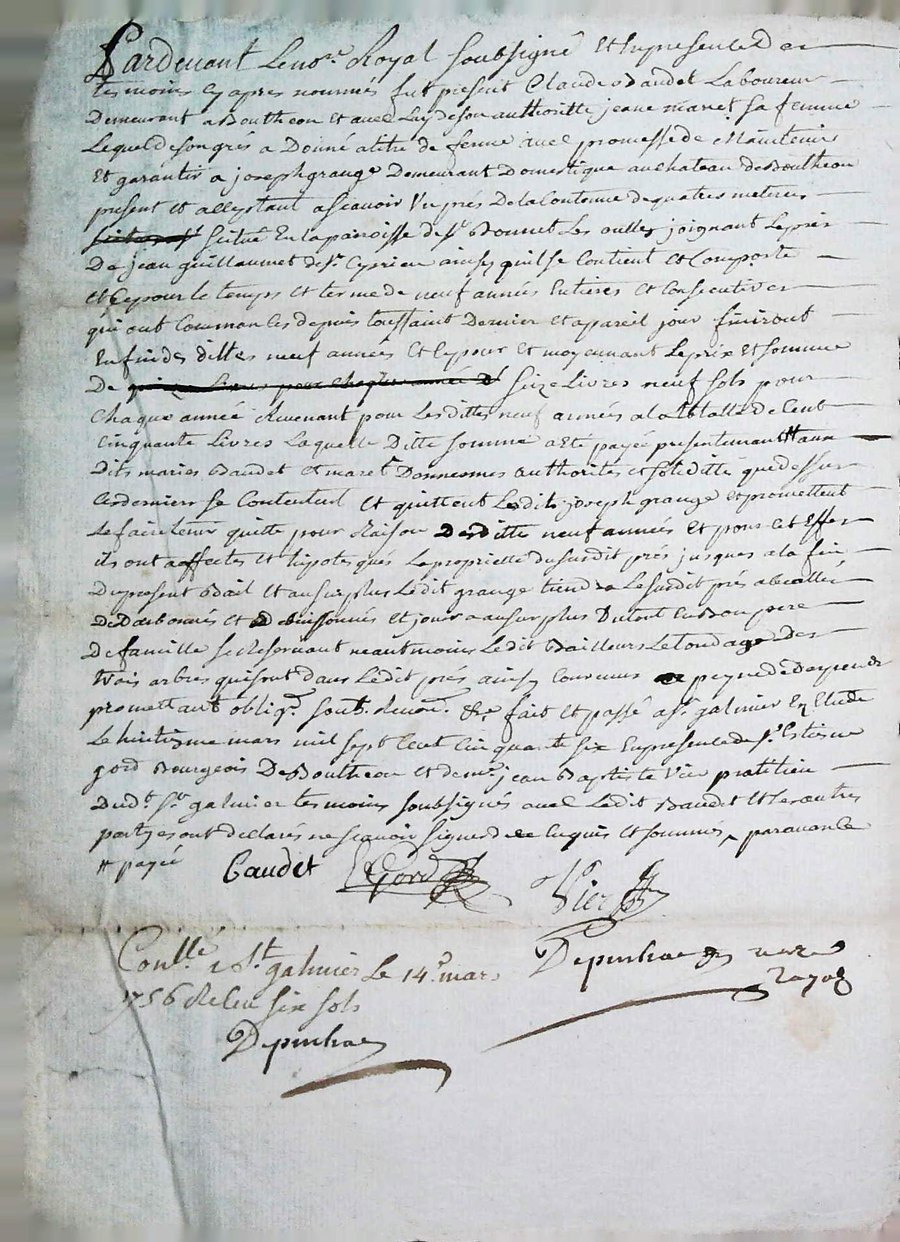 Pardevant Le no.re Royal Soubsigné Et En presence Des
tesmoins cy apres nommés fut present Claude Baudet Laboureur
Demeurant a Boutheon et avec Luy de son authoritté jeane maret sa femme
Lequel de son grés a Donné a titre de ferme avec promesse de Maintenir
Et garantir a joseph grange Demeurant Domestique au chateau de Boutheon
present et acceptant a scavoir Un prés De la Contenue de quatre metterees
scitué En la paroisse de St Bonnet Les oulles joignant Le prés
De jean guillaumet de St Cyprien ainsy quil se Contient et Comporte
et Ce pour le temps et terme de neuf années Entieres et Consecutives
qui ont Commancées depuis toussaint Dernier et a pareil jour finiront
En fin des dittes neuf années et Ce pour et moyennant Le prix et somme
De quinze Livres pour chaque année De Seize Livres neuf sols pour
Chaque année Revenant pour Les dittes neuf années a la totalle de Cent
Cinquante Livres Laquelle Ditte somme a eté payée presentement aux
Dits mariés Baudet et maret De mesmes authorités et soliditté que dessus
Ces derniers se Contentent et quittent Le dit joseph grange et promettent
Le faire tenir quitte pour Raison Desdittes neuf années et pour cet Effet
ils ont affectés et hipotesqués La propriette du susdit prés jusques a la fin
Du present Bail et au surplus Ledit grange tiendra Le susdit prés
et Buissonnés et jouira au surplus Du tout En Bon pere
De famille se Reservant neantmoins Ledit Bailleurs Le tondage Des
trois arbres qui sont dans Ledit prés ainsy Convenus a peyne de Depends
promettant oblig.t soub. Renon. &c fait et passé a St galmier En Etude
Le huitieme mars mil sept Cent Cinquante six En presence de Sr Estienne
gord Bourgeois De Boutheon et de me jean Baptiste Vier pratitien
Dud.t St galmier tesmoins soubsignés avec Ledit Baudet et Les autres
partyes ont declarés ne scavoir signer de ce Enquis et sommés
+ payée Baudet E Gord Vier
Con.lle a St galmier Le 14e mars
1756 Receu six sols
Depuihac